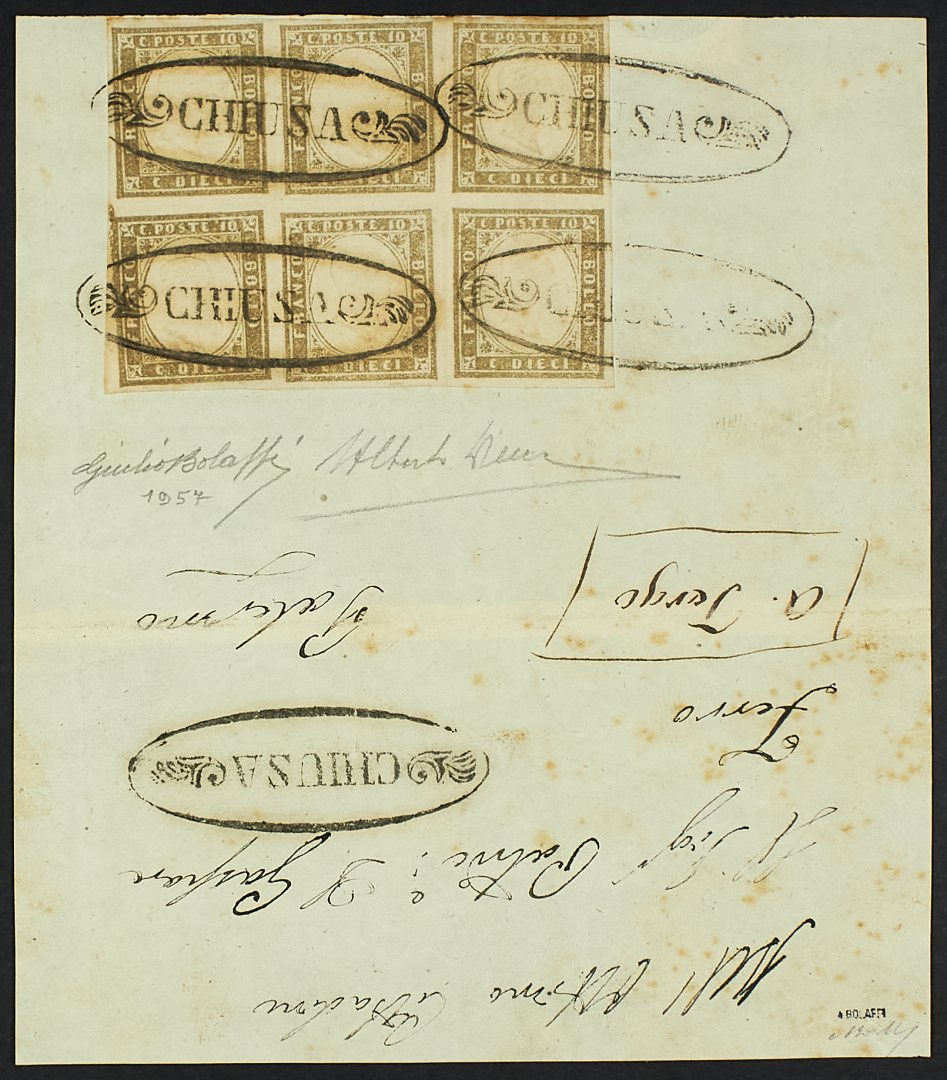 C. POSTE 10 C. POSTE 10 C. POSTE 10
FRANCO BOLLO FRANCO BOLLO FRANCO BOLLO
CHIUSA CHIUSA
C. DIECI C. DIECI C. DIECI
C. POSTE 10 C. POSTE 10 C. POSTE 10
FRANCO BOLLO FRANCO BOLLO FRANCO BOLLO
CHIUSA CHIUSA
C. DIECI C. DIECI C. DIECI
Giulio Bolaffi Alberto Diena
1957
All' Ottimo Cittadino
Il Sigr D. Gaspare
CHIUSA
Ferro
a Tergo
Palermo
A BOLAFFI